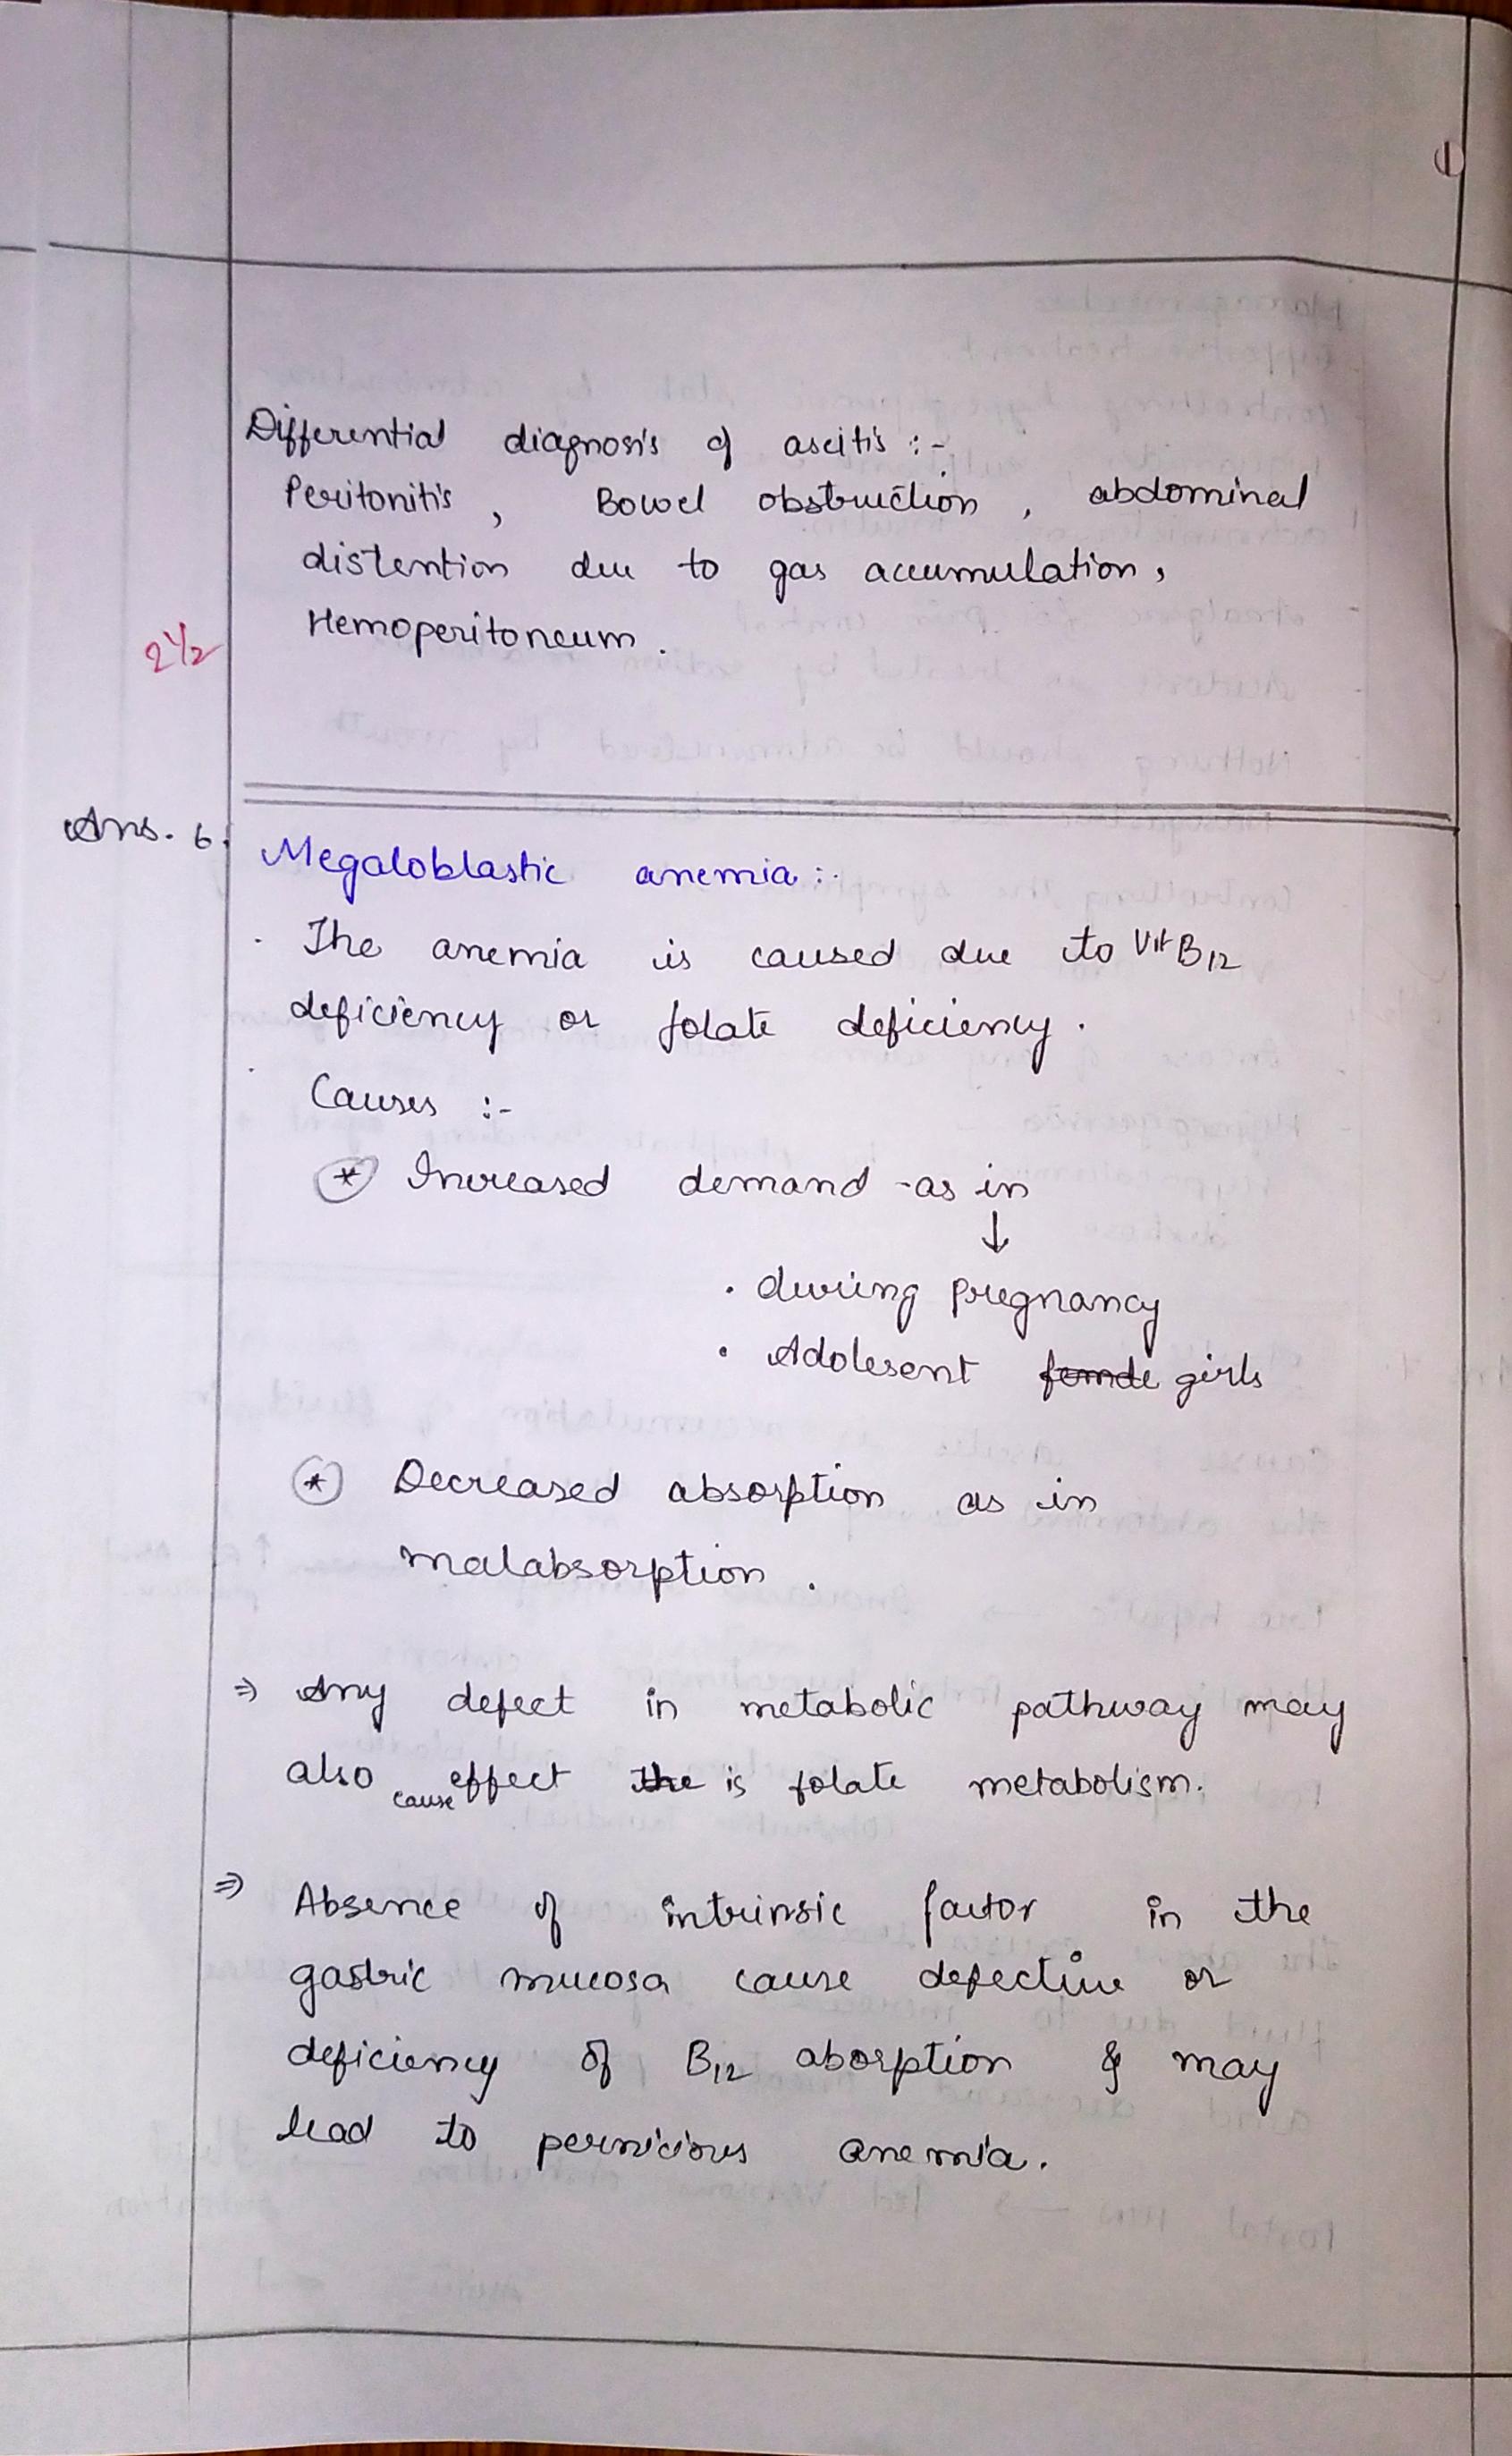 1
Differential diagnosis of ascitis :-
Peritonitis, Bowel obstruction, abdominal
distention due to gas accumulation,
Hemoperitoneum.
2½
Ans. 6.
Megaloblastic anemia :-
· The anemia is caused due to Vit B12
deficiency or folate deficiency.
· Causes :-
* Increased demand - as in
↓
· during pregnancy
· Adolesent femde girls
* Decreased absorption as in
malabsorption.
⇒ Any defect in metabolic pathway may
also cause effect the is folate metabolism.
⇒ Absence of intrinsic factor in the
gastric mucosa cause defective or
deficiency of B12 aborption & may
lead to pernicious anemia.